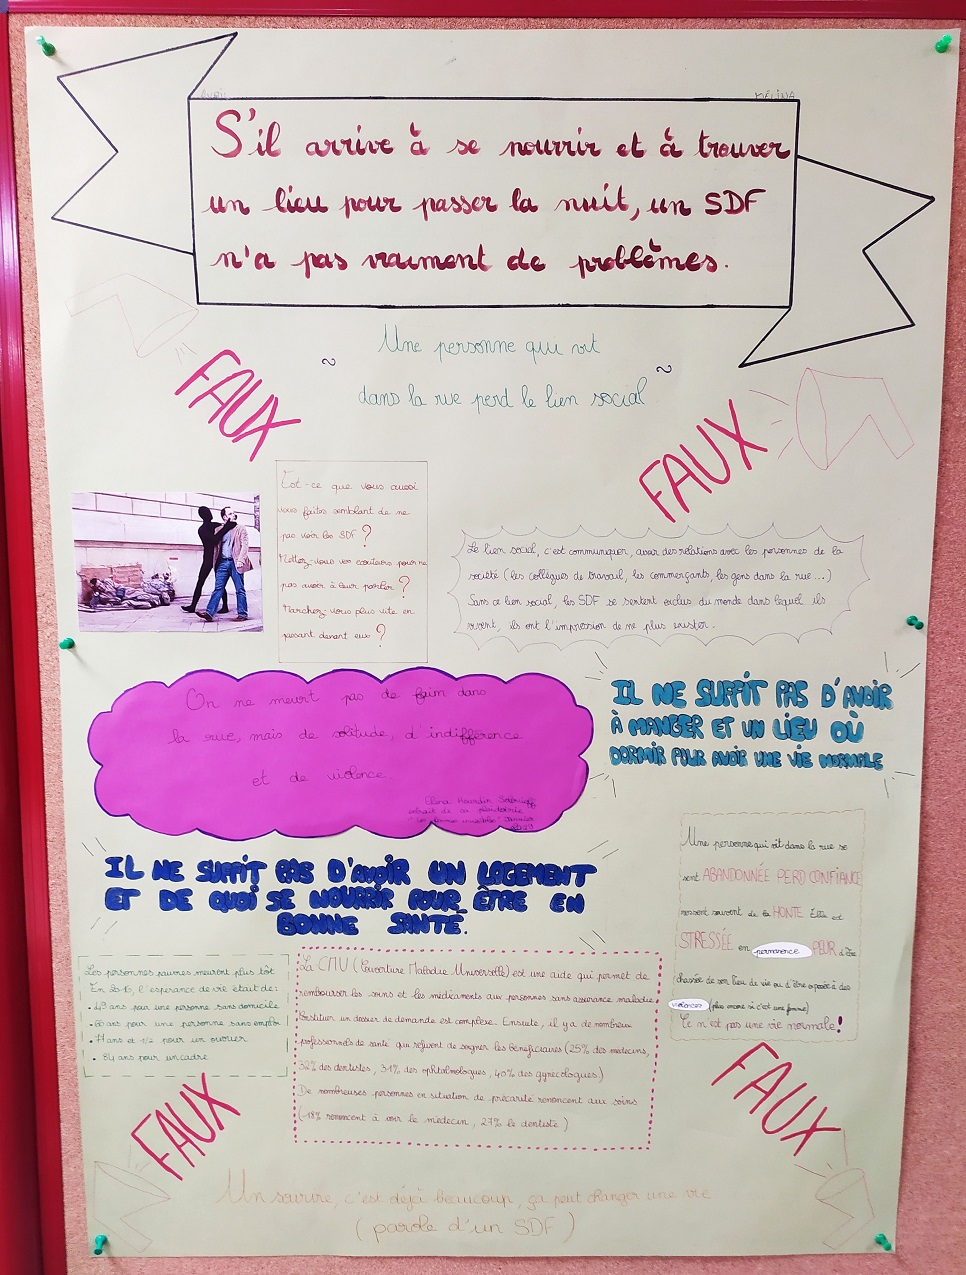 Avril
MÉLINA
S'il arrive à se nourrir et à trouver
un lieu pour passer la nuit, un SDF
n'a pas vraiment de problèmes.
Une personne qui vit
dans la rue perd le lien social
FAUX
FAUX
Est-ce que vous aussi
vous faites semblant de ne
pas voir les SDF ?
Mettez-vous vos écouteurs pour ne
pas avoir à leur parler ?
Marchez-vous plus vite en
passant devant eux ?
Le lien social, c'est communiquer, avoir des relations avec les personnes de la
société (les collègues de travail, les commerçants, les gens dans la rue...)
Sans ce lien social, les SDF se sentent exclus du monde dans lequel ils
vivent, ils ont l'impression de ne plus exister.
On ne meurt pas de faim dans
la rue, mais de solitude, d'indifférence
et de violence
extrait de sa plaidoirie
IL NE SUFFIT PAS D'AVOIR
À MANGER ET UN LIEU OÙ
DORMIR POUR AVOIR UNE VIE NORMALE
IL NE SUFFIT PAS D'AVOIR UN LOGEMENT
ET DE QUOI SE NOURRIR POUR ÊTRE EN
BONNE SANTÉ.
Une personne qui vit dans la rue se
sent ABANDONNÉE PERD CONFIANCE
ressent souvent de la HONTE Elle est
STRESSÉE en permanence PEUR d'être
chassée de son lieu de vie ou d'être exposée à des
violences (plus encore si c'est une femme)
Ce n'est pas une vie normale !
Les personnes pauvres meurent plus tôt
En 2016, l'espérance de vie était de :
. 49 ans pour une personne sans domicile
. 60 ans pour une personne sans emploi
. 71 ans et 1/2 pour un ouvrier
. 84 ans pour un cadre
La CMU (Couverture Maladie Universelle) est une aide qui permet de
rembourser les soins et les médicaments aux personnes sans assurance maladie
Constituer un dossier de demande est complexe. Ensuite, il y a de nombreux
professionnels de santé qui refusent de soigner les bénéficiaires (25% des médecins,
32% des dentistes, 31% des ophtalmologues, 40% des gynécologues.)
De nombreuses personnes en situation de précarité renoncent aux soins
(18% renoncent à voir le médecin, 27% le dentiste)
FAUX
FAUX
Un sourire, c'est déjà beaucoup, ça peut changer une vie
(parole d'un SDF)